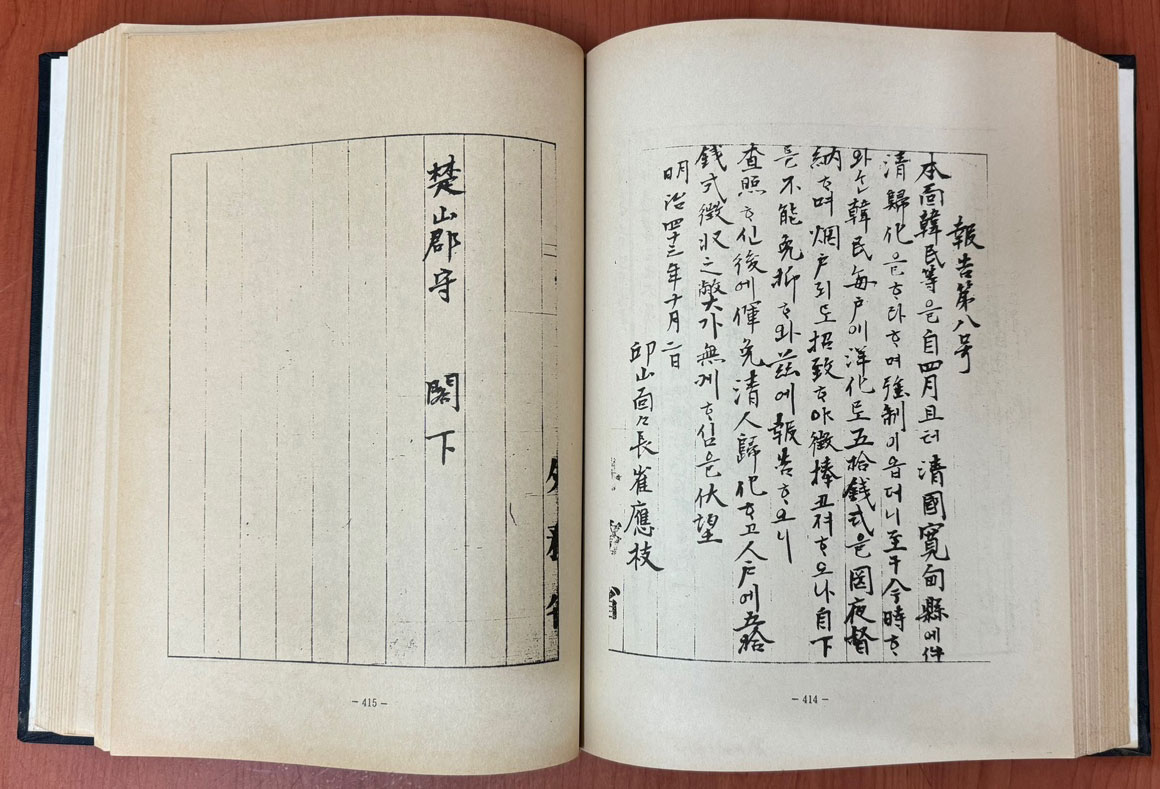 報告第八号
本面韓民等은自四月且터清國寬甸縣에셔
清歸化을하라하며強制이옵더니至于今時하
와는韓民每戶에洋化로五拾錢式을罔夜督
納하며烟戶되로招致하야徵捧코져하오나自下
로不能免抑하와玆에報告하오니
查照하신後에倕免清人歸化하고人戶에五拾
錢式徵收之弊가無케하심을伏望
明治四十三年十月二日
邱山面面長崔應枝
- 414 -
楚山郡守 閣下
- 415 -